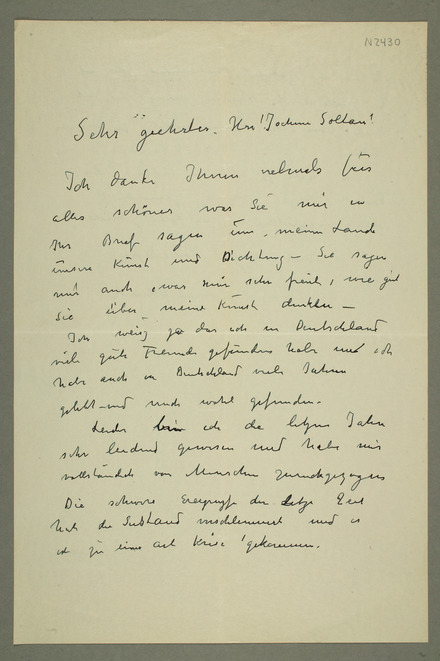 N2430
Sehr geehrter Herr Jochum Soltau!
Ich danke Ihnen vielmals für
alles schönes was Sie mir in
Ihr Brief sagen über meine Lande
unsere Kunst und Dichtung – Sie sagen
mir auch, was mir sehr freut, wie gut
Sie über meine Kunst denken –
Ich weis ja das ich in Deutschland
viele gute Freunde gefunden habe und ich
habe auch in Deutschland viele Jahren
gelebt – und mich wohl gefunden.
Leider bin ich die letzten Jahren
sehr leidend gewesen und habe mir
vollständich von Menschen zurückgezogen
Die schwere der letzte Zeit
hat die verschlimmert und es
ist zu eine art Krise gekommen.